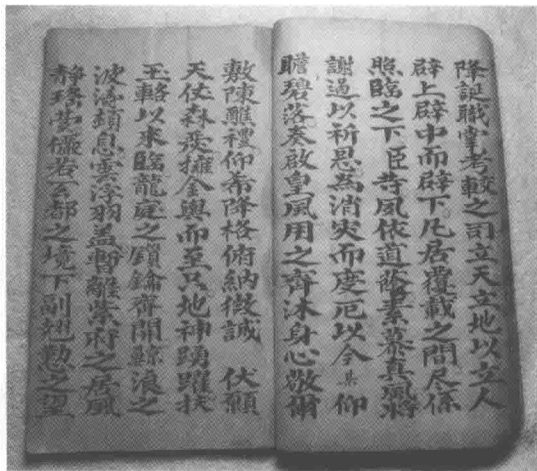 降誕職掌考較之司立天立地以立人
辟上辟中而辟下凡居覆載之間尽係
照臨之下臣等夙依道蔭素慕真風將
謝過以祈恩為消災而度厄以今某仰
瞻碧落奏啟皇風用之齋沐身心敬備
敷陳醮禮仰希降格俯納微誠 伏願
天仗森嚴擁金輿而至只地神踴躍扶
玉輅以來臨龍庭之鎖鑰齊開鯨浪之
波濤頓息雲浮羽盖暫離紫府之居風
靜瑤壇儼若玄都之境下副翹勤之望